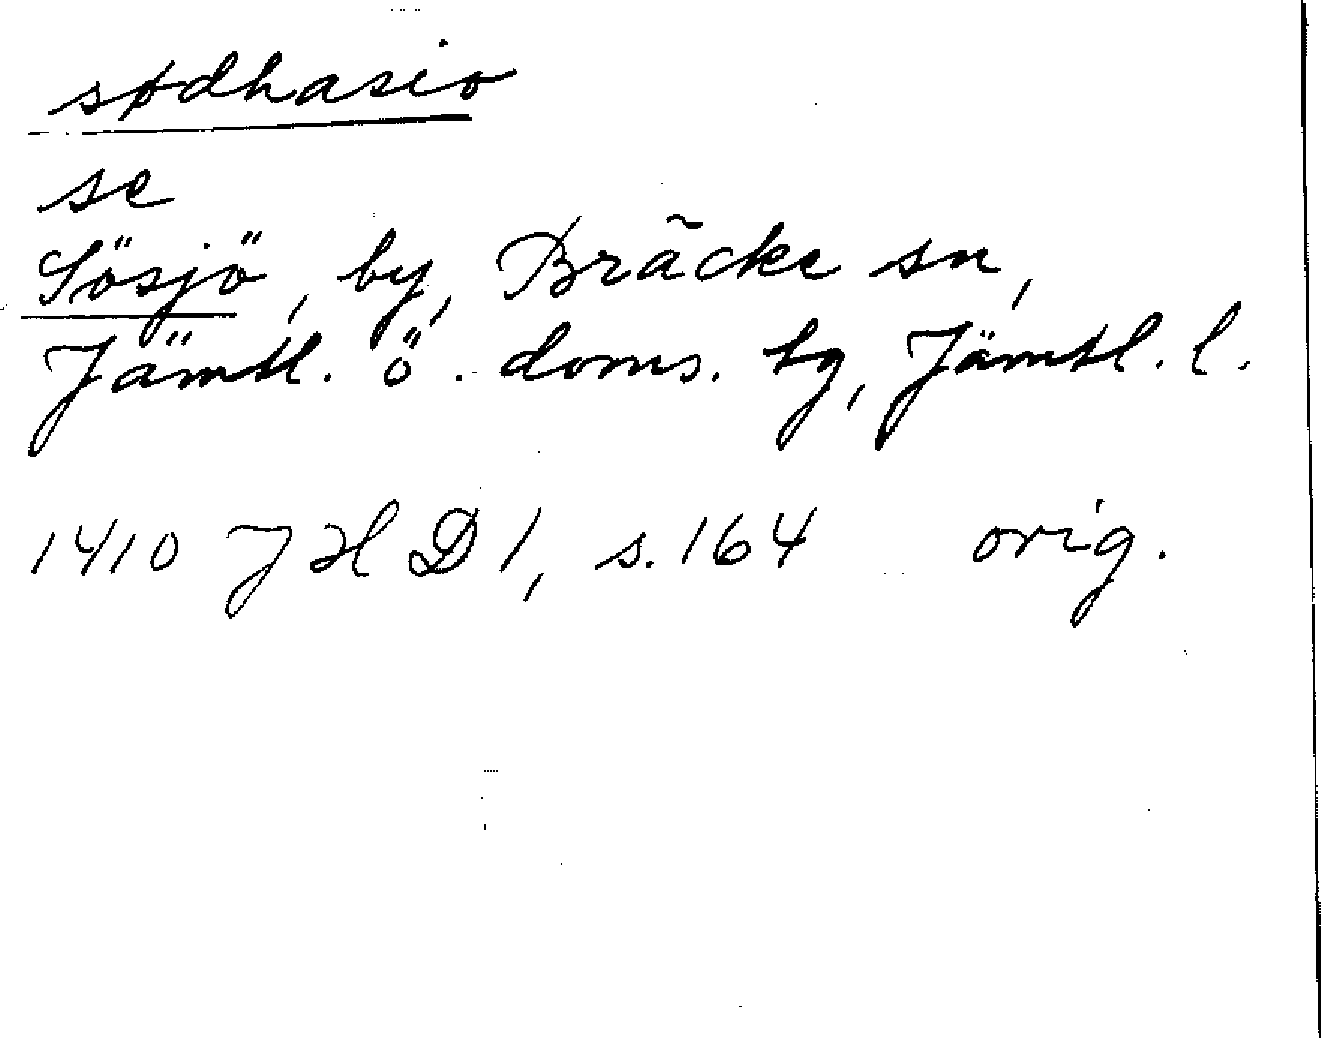 sødhasio
se
Sösjö, by, Bräcke sn,
Jämtl. ö. doms. tg, Jämtl. l.
1410 JHD 1, s. 164 orig.